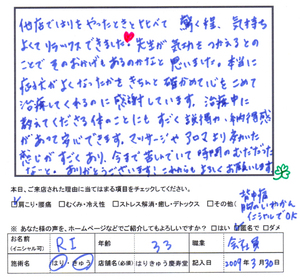 他店ではりをやったときとくらべて 驚く程、気持ち
よくてリラックスできました! 先生が気功をつかえるとの
ことで そのおかげもあるのかなと思いました。本当に
症状がよくなったかをきちんと確かめて心をこめて
治療してくれるのに感謝しています。治療中に
教えてくださる体のことにも すごく説得力・納得感
があって安心できます。マッサージやアロマより効いた
感じがすごくあり、今まで苦いていて時間のむだだった
なと。ありがとうございます! これからもよろしくお願いします。
本日、ご来店された理由に当てはまる項目をチェックしてください。
☑肩こり・腰痛 □むくみ・冷え性 □ストレス解消・癒し・デトックス □その他
背中痛
イニシャルでOK
※ あなた様の声を、ホームページなどでご紹介してもよろしいですか? はい 匿名で ダメ
お名前
(イニシャル可) R I 年齢 33 職業 会社員
施術名 はり・きゅう 店舗名(必須) はりきゅう慶寿堂 記入日 2009年 3月30日